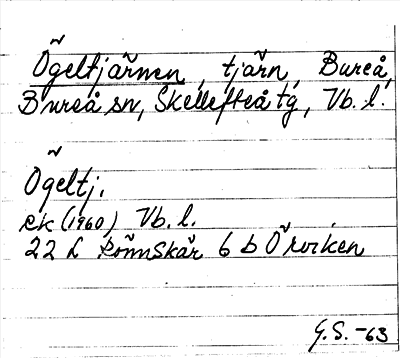 Ögeltjärnen, tjärn, Bureå,
Bureå sn, Skellefteå tg, Vb. l.
Ögeltj.
RK (1960) Vb. l.
22 L Rönnskär 6 b Örviken
G.S. -63